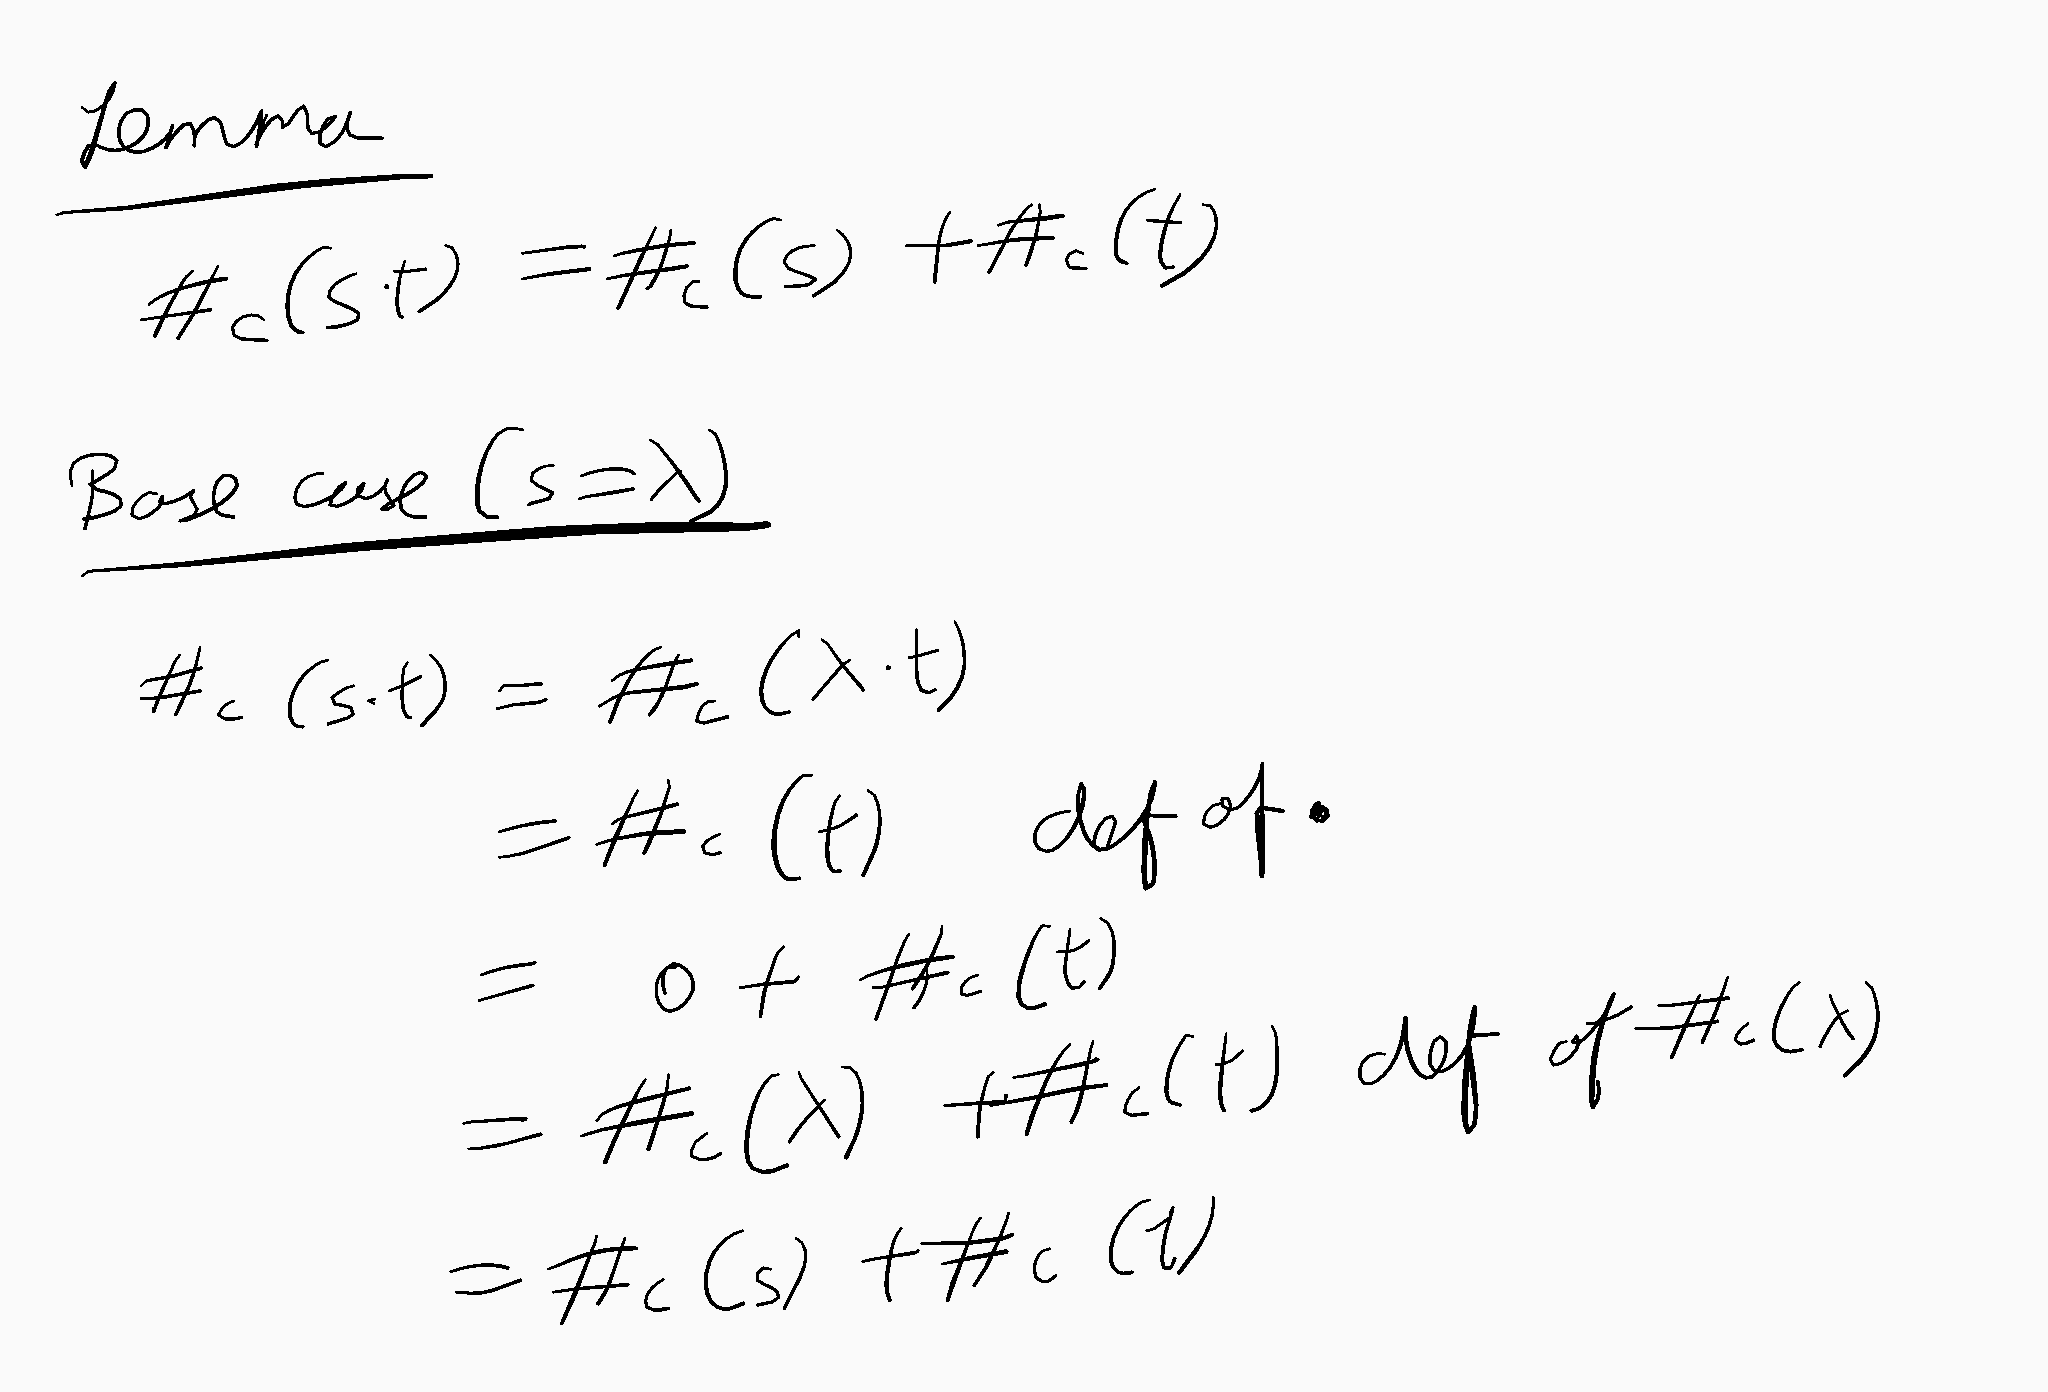 Lemma
#c(s·t) = #c(s) + #c(t)
Base case (s=λ)
#c(s·t) = #c(λ·t)
= #c(t) def of ·
= 0 + #c(t)
= #c(λ) + #c(t) def of #c(λ)
= #c(s) + #c(t)